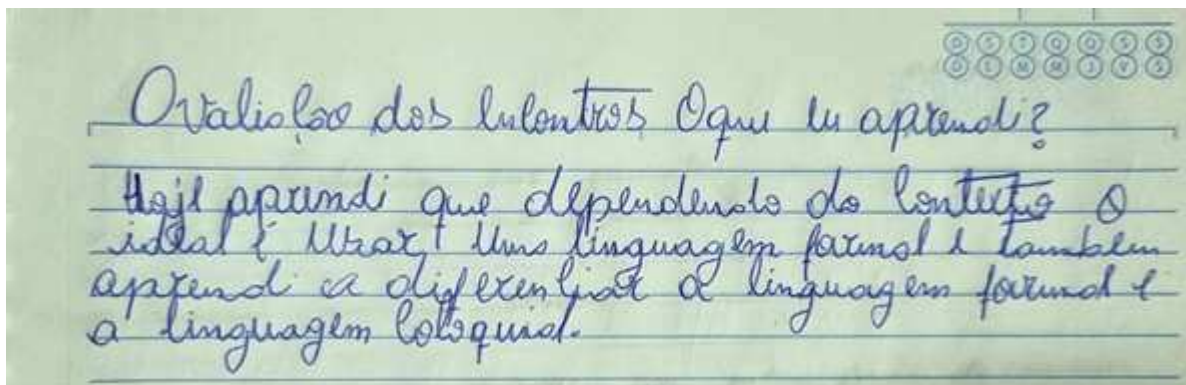 D S T Q Q S S
D L M M J V S
Avaliação dos Encontros O que eu aprendi?
Hoje aprendi que dependendo do Contexto o
ideal é Usar Uma linguagem formal e também
aprendi a diferenciar a linguagem formal e
a linguagem Coloquial.